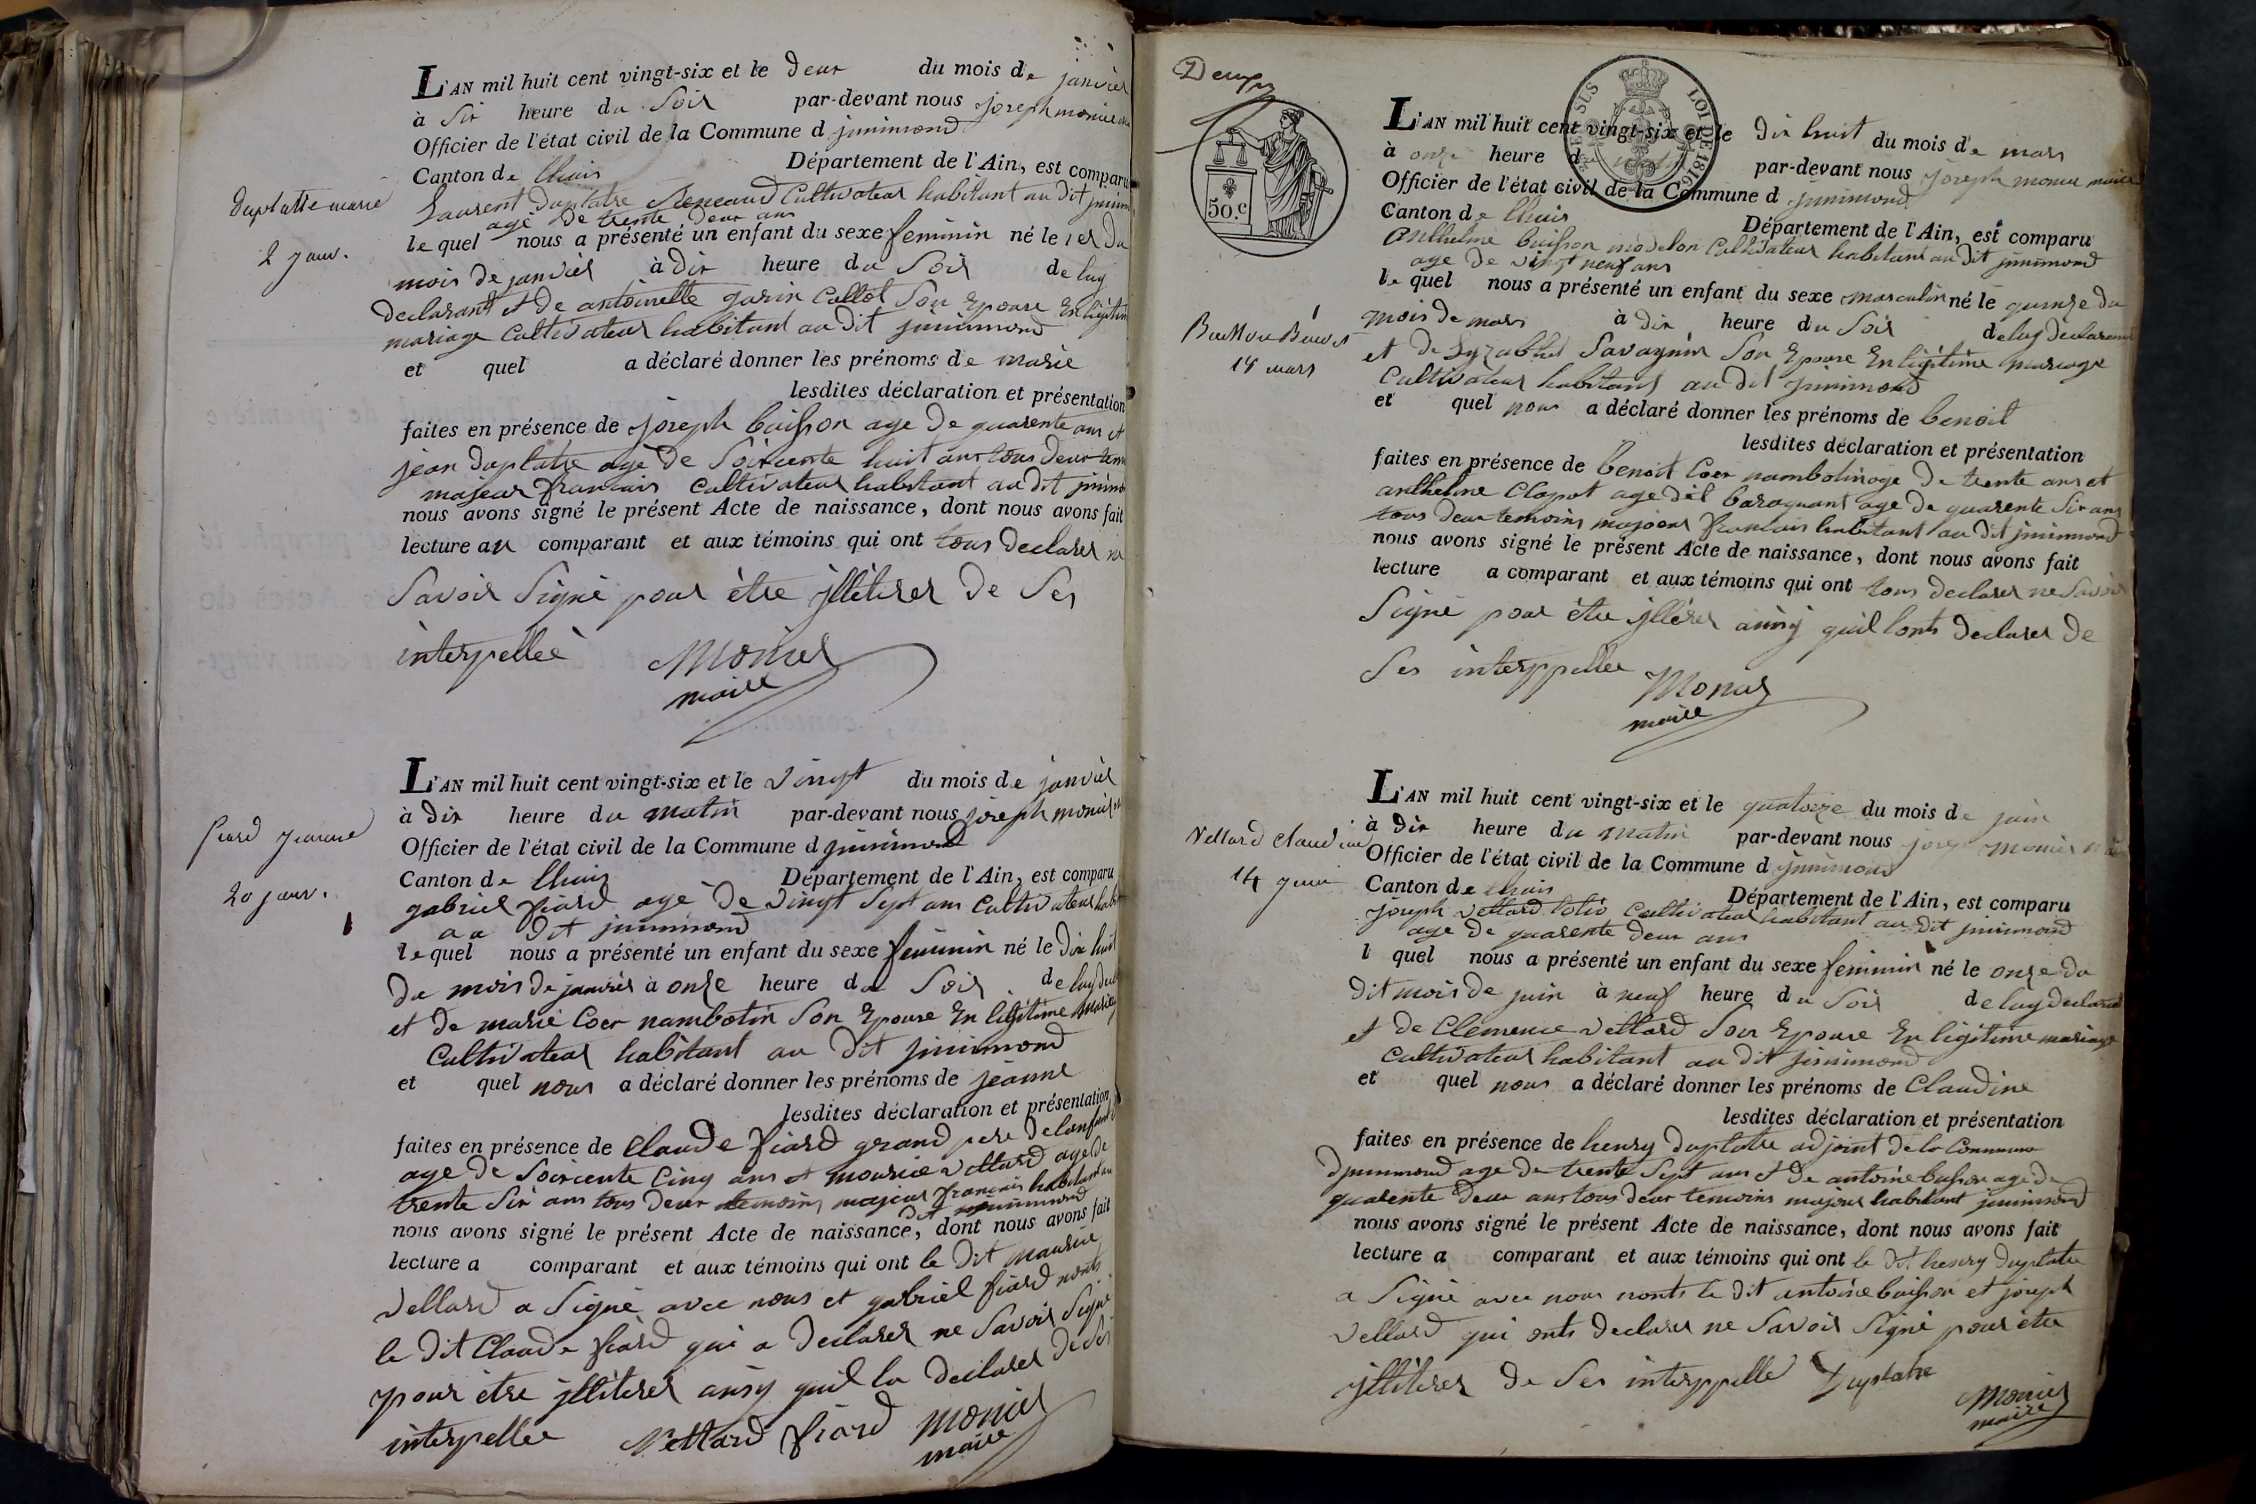 L'AN mil huit cent vingt-six et le deux du mois de janvier
à Six heure du Soir par-devant nous joseph monier
Officier de l'état civil de la Commune d jnnimond
Canton de lhuis Département de l'Ain, est comparu
Laurent duplatre Cultivateur habitant au dit
agé de trente deux ans
le quel nous a présenté un enfant du sexe feminin né le 1er du
duplatte marie
2 janv.
mois de janvier à dix heure du Soir de luy
declarant et de antoinette garin Collet Son Epouse En legitime
mariage Cultivateur habitant au dit jnnimond
et quel a déclaré donner les prénoms de marie
lesdites déclaration et présentation
faites en présence de joseph buisson age de quarente ans et
jean duplatre agé de Soixcente huit ans tous deux
majeur francais Cultivateur habitant au dit
nous avons signé le présent Acte de naissance, dont nous avons fait
lecture au comparant et aux témoins qui ont tous declarer ne
Savoir Signé pour être jlliterer de Ses
interpelleé Monier
maire
L'AN mil huit cent vingt-six et le vingt du mois de janvier
à dix heure du matin par-devant nous joseph monier
Officier de l'état civil de la Commune d jnnimond
fiard jeanne
20 janv.
Canton de lhuis Département de l'Ain, est comparu
gabriel fiard agé de vingt Sept ans Cultivateur
au dit jnnimond
le quel nous a présenté un enfant du sexe feminin né le dix huit
du mois de janvier à onze heure du Soir de luy
et de marie Coer nambotin Son Epouse En legitime mariage
Cultivateur habitant au dit jnnimond
et quel nous a déclaré donner les prénoms de jeanne
lesdites déclaration et présentation
faites en présence de Claude fiard grand pere de lenfant
age de Soixcente Cinq ans et mourice vettard age de
trente Six ans tous deux temoins majeur francais habitant au
dit jnnimond
nous avons signé le présent Acte de naissance, dont nous avons fait
lecture a comparant et aux témoins qui ont le dit maurice
vettard a Signé avec nous et gabriel fiard nonts
le dit Claude fiard qui a declarer ne Savoir Signé
pour être jlliterer ainsy quil la declarer de Ses
interpellee Vettard fiard Monier
maire
Deux
50.c
LOI DE 1816
L'AN mil huit cent vingt-six et le dix huit du mois de mars
à onze heure du par-devant nous joseph monier maire
Officier de l'état civil de la Commune d jnnimond
Canton de lhuis Département de l'Ain, est comparu
Anthelme buisson modelon Cultivateur habitant au dit jnnimond
age de vingt neuf ans
le quel nous a présenté un enfant du sexe masculin né le quinze du
18 mars
mois de mars à dix heure du Soir de luy declarant
et de Savagnin Son Epouse En legitime mariage
Cultivateur habitant au dit jnnimond
et quel nous a déclaré donner les prénoms de benoit
lesdites déclaration et présentation
faites en présence de benoit Coer nambotin age de trente ans et
anthelme Clapot age dit baraquant age de quarente Six ans
tous deux temoins majeur francais habitant au dit jnnimond
nous avons signé le présent Acte de naissance, dont nous avons fait
lecture a comparant et aux témoins qui ont tous declarer ne Savoir
Signé pour être ainsy quil lonts declarer de
Ses interppellee Monier
maire
L'AN mil huit cent vingt-six et le quatorze du mois de juin
à dix heure du matin par-devant nous monier
Officier de l'état civil de la Commune d jnnimond
Vettard Claudine
14 juin
Canton de lhuis Département de l'Ain, est comparu
joseph vettard Cultivateur habitant au dit jnnimond
age de quarente deux ans
l quel nous a présenté un enfant du sexe feminin né le onze du
dit mois de juin à neuf heure du Soir de luy declarant
et de Clemence vettard Son Epouse En legitime mariage
Cultivateur habitant au dit jnnimond
et quel nous a déclaré donner les prénoms de Claudine
lesdites déclaration et présentation
faites en présence de henry duplatre adjoint de la Commune
djnnimond age de trente Sept ans et de antoine buisson age de
quarente deux ans tous deux temoins majeur habitant jnnimond
nous avons signé le présent Acte de naissance, dont nous avons fait
lecture a comparant et aux témoins qui ont le dit henry duplatre
a Signé avec nous nonts le dit antoine buisson et joseph
vettard qui onts declarer ne Savoir Signé pour être
jlliterer de Ses interppelle Duplatre
Monier
maire